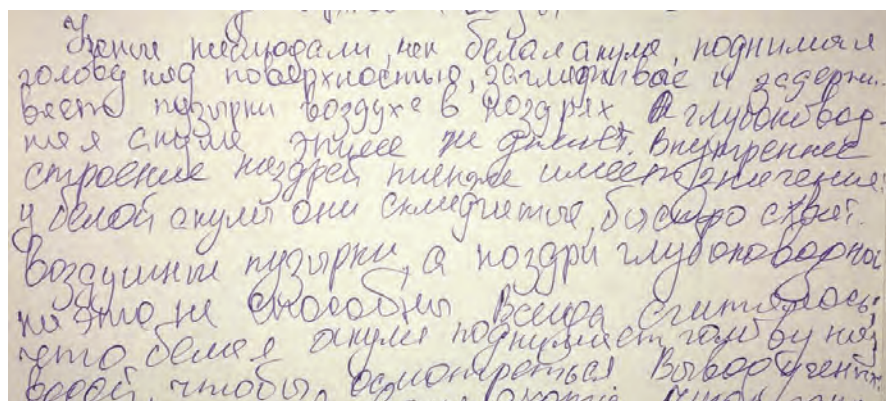 Ученые наблюдали, как белая акула, поднимая
голову над поверхностью, заглатывает и задержи-
вает пузырьки воздуха в ноздрях. А глубоковод-
ная акула этого не делает. Внутреннее
строение ноздрей также имеет значение:
у белой акулы они складчатые, быстро
воздушные пузырьки, а ноздри глубоководной
на это не способны. Всегда считалось,
что белая акула поднимает голову над
водой, чтобы осмотреться. Вывод